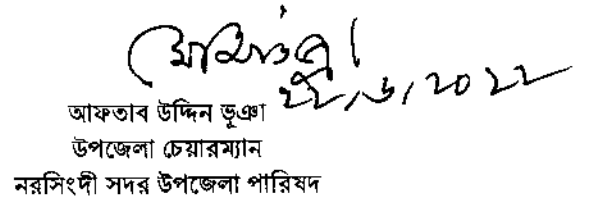 ২২/৬/২০২২
আফতাব উদ্দিন ভূঞা
উপজেলা চেয়ারম্যান
নরসিংদী সদর উপজেলা পারিষদ